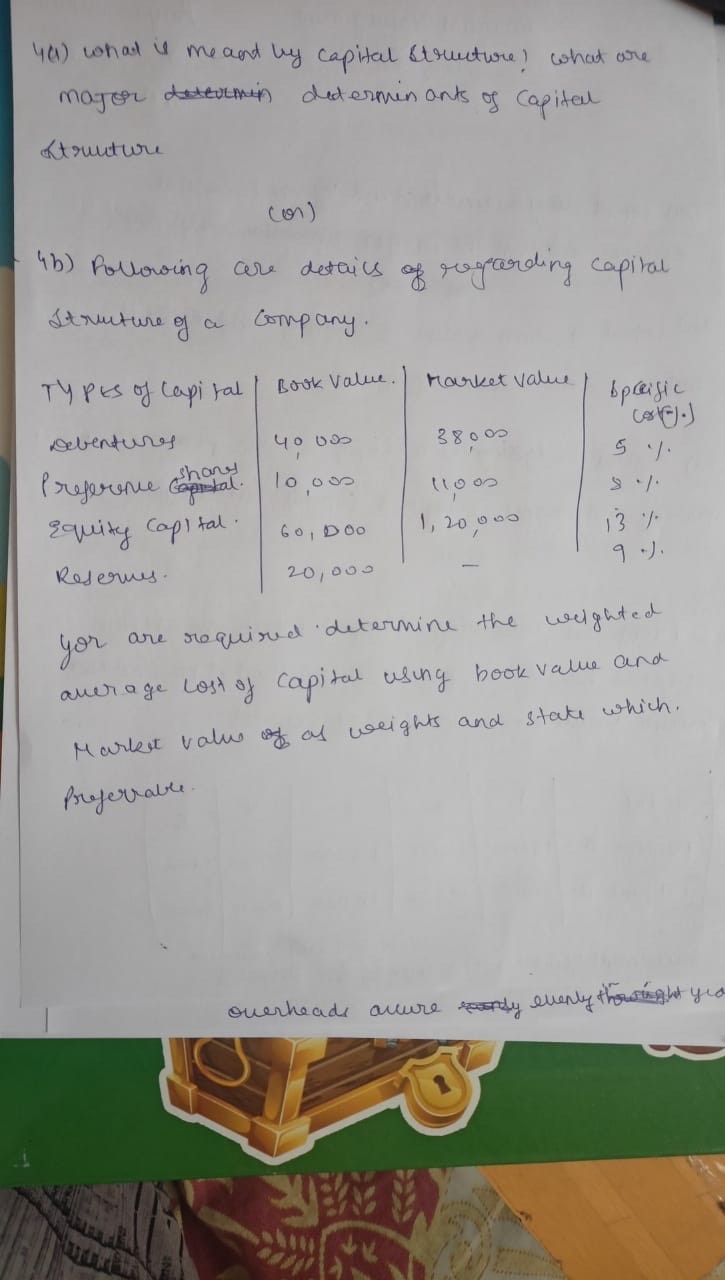 4a) what is meand by capital structure? what are
major determin determinants of capital
structure
(or)
4b) Following are details of regarding capital
structure of a company.
Types of Capital | Book Value. | Market Value | Specific cost(%)
Debentures 40,000 38,000 5 %
Preference shares capital. 10,000 11,000 8 %
Equity Capital. 60,000 1,20,000 13 %
Reserves. 20,000 — 9 %
You are required determine the weighted
average cost of capital using book value and
Market value of as weights and state which.
Preferrable.
overheads accure evenly